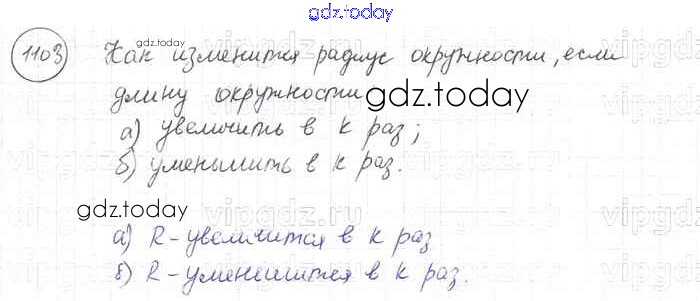 gdz.today
1103 Как изменится радиус окружности, если
gdz.today
длину окружности
gdz.today
а) увеличить в k раз;
б) уменьшить в k раз.
vipgdz.ru
gdz.today
а) R - увеличится в k раз
б) R - уменьшится в k раз.